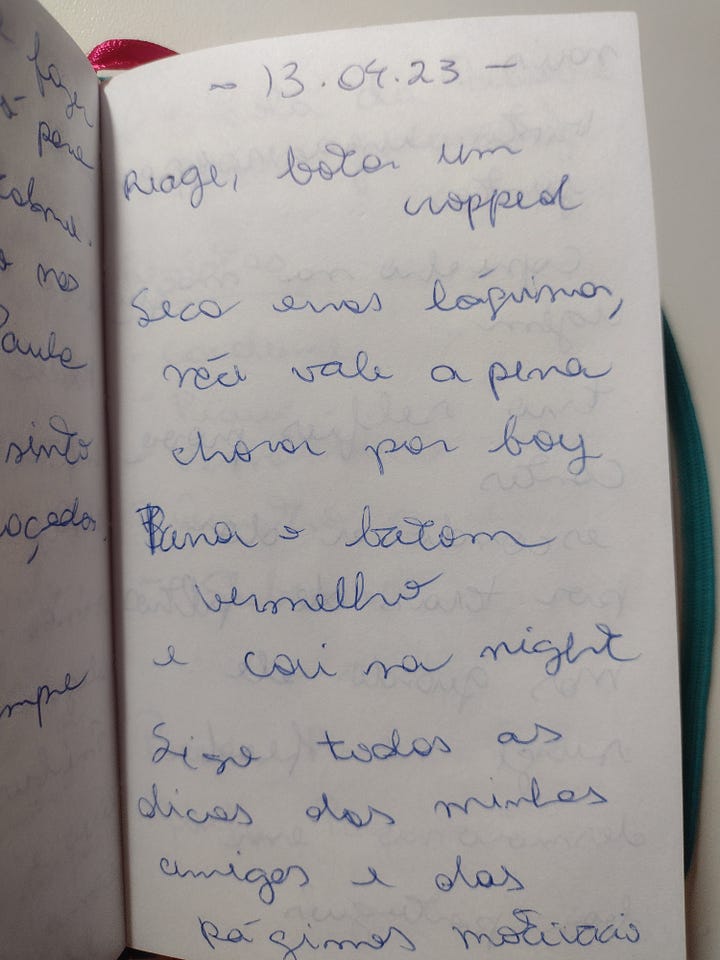 fazer
para
nos
Paula
sinto
- 13.04.23 -
reage, bota um
cropped
Seca essas lágrimas,
não vale a pena
chorar por boy
Passa o batom
vermelho
e cai na night
Sigo todas as
dicas das minhas
amigas e das
páginas motivacio